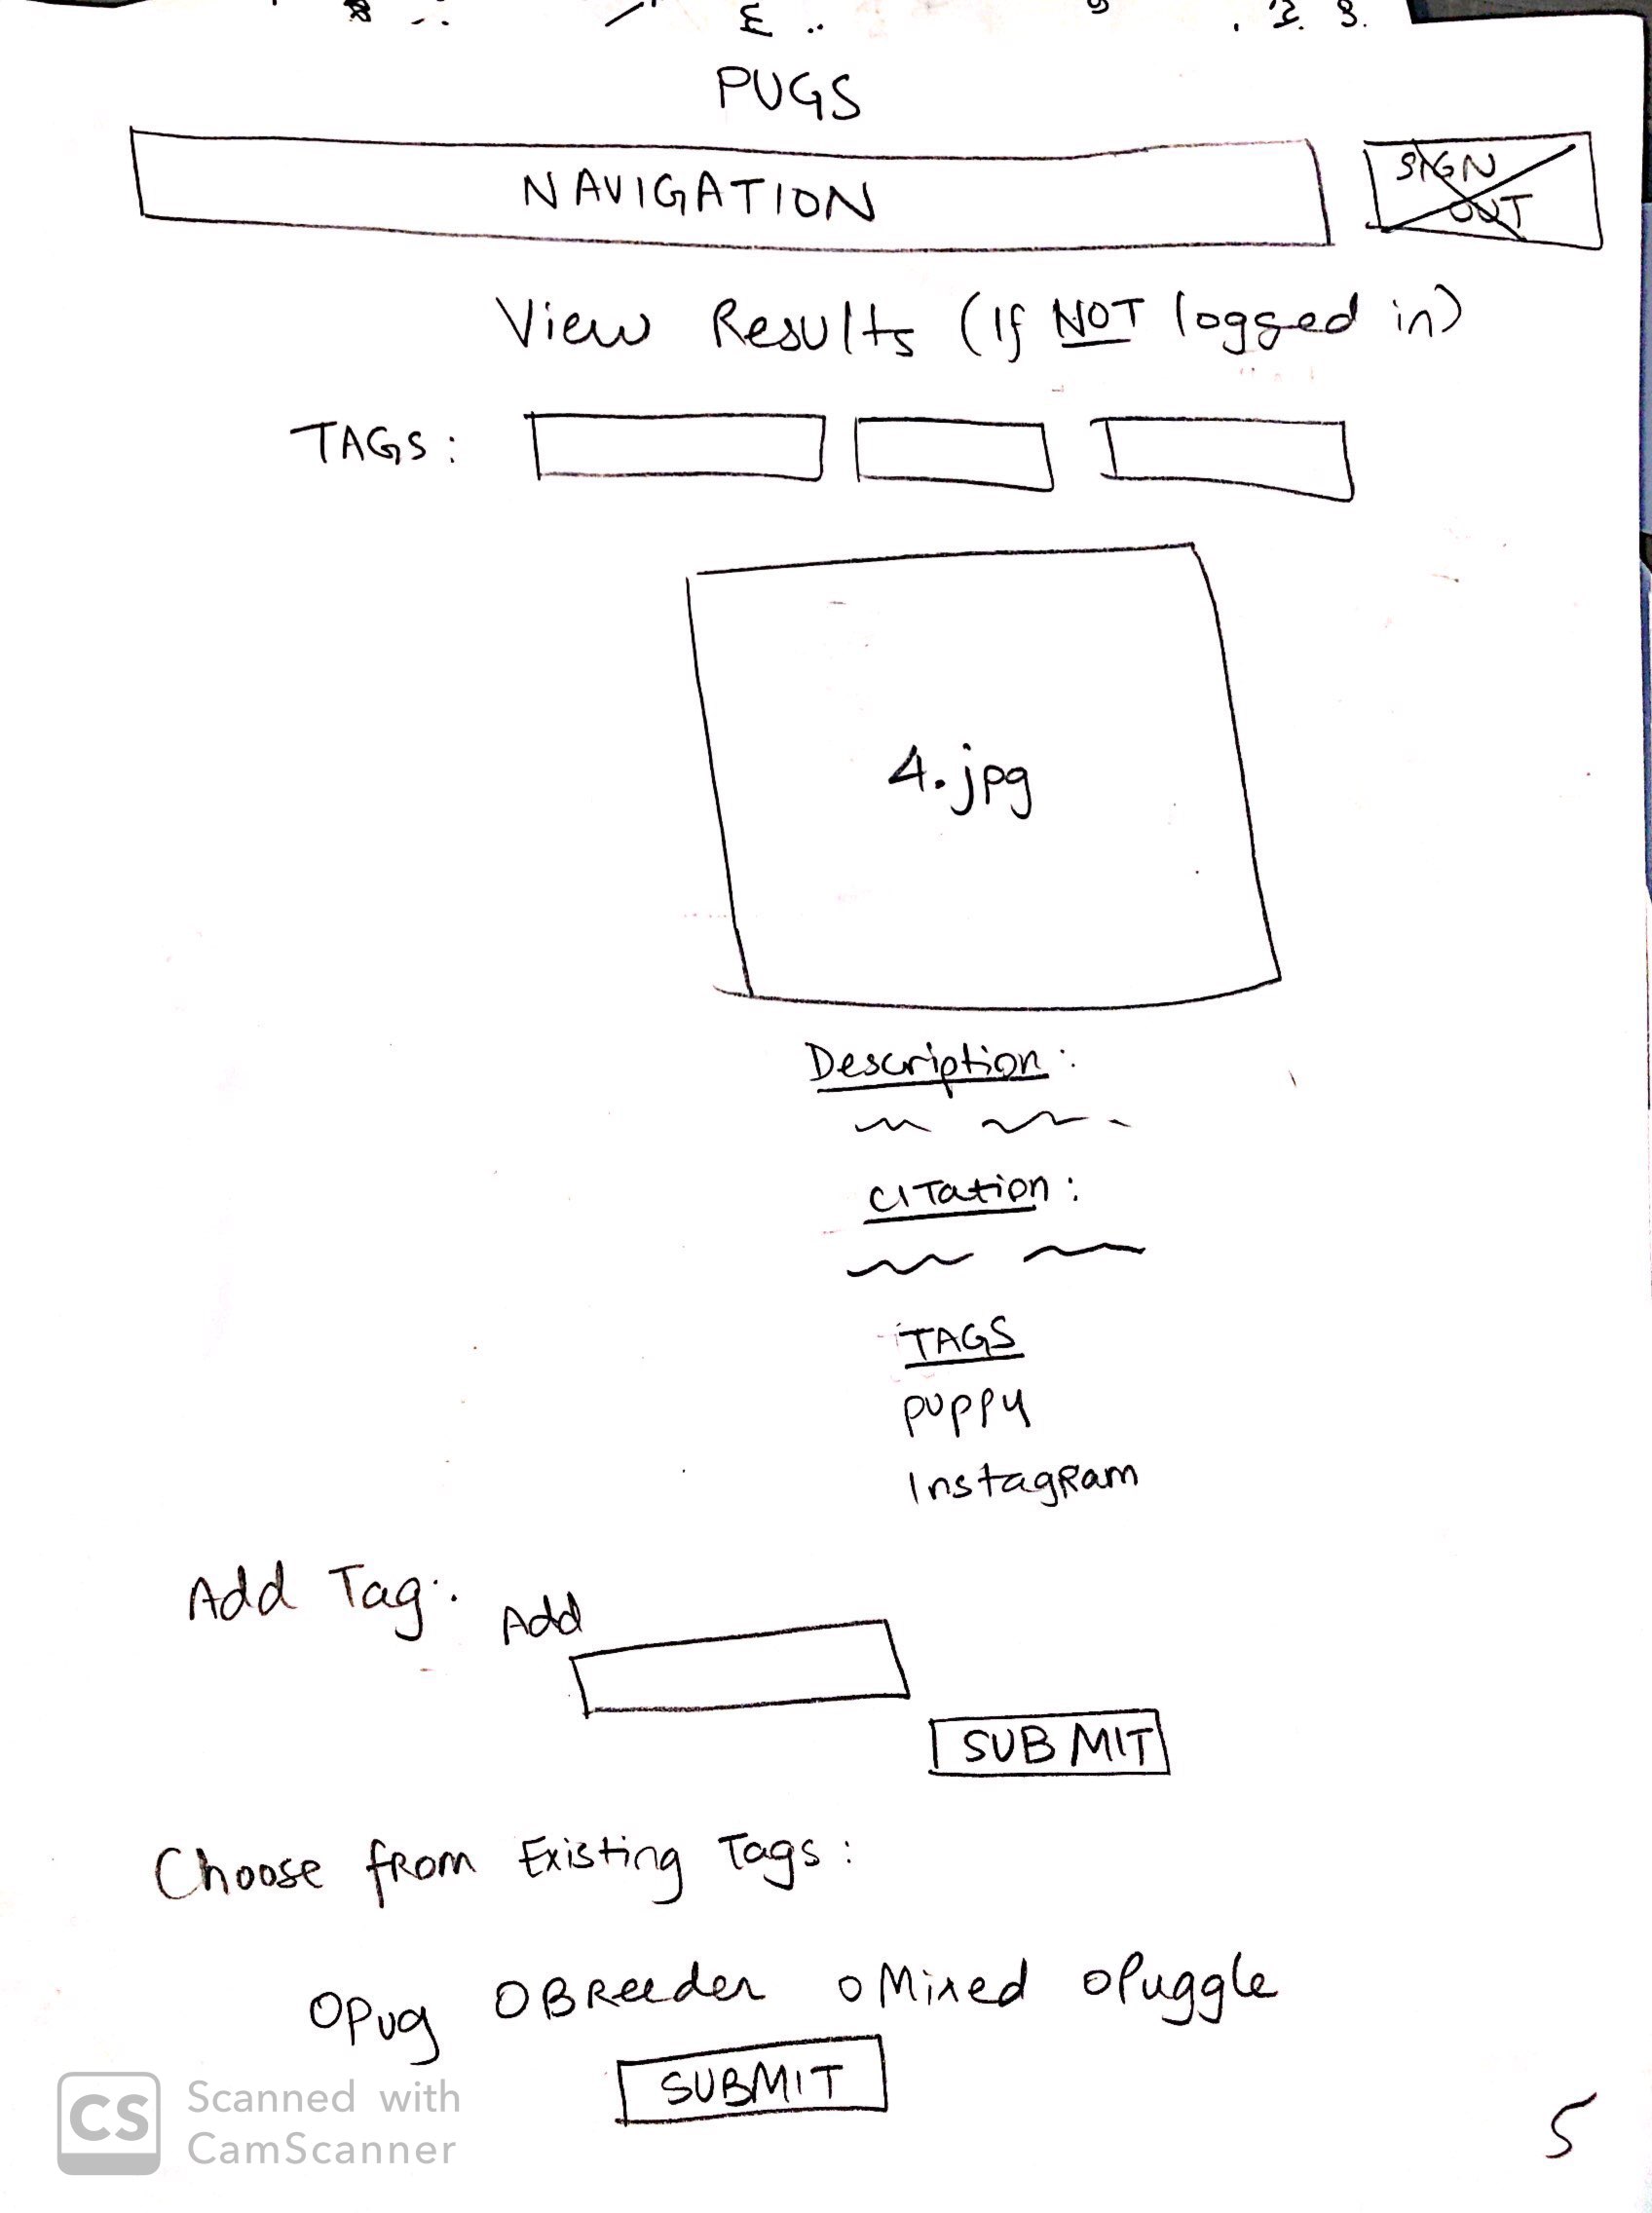 PUGS
NAVIGATION
SIGN
OUT
View Results (If NOT logged in)
TAGS:
4.jpg
Description:
Citation:
TAGS
puppy
Instagram
Add Tag:
Add
SUBMIT
Choose from Existing Tags:
Pug Breeder Mixed Puggle
SUBMIT
CS Scanned with
CamScanner
5